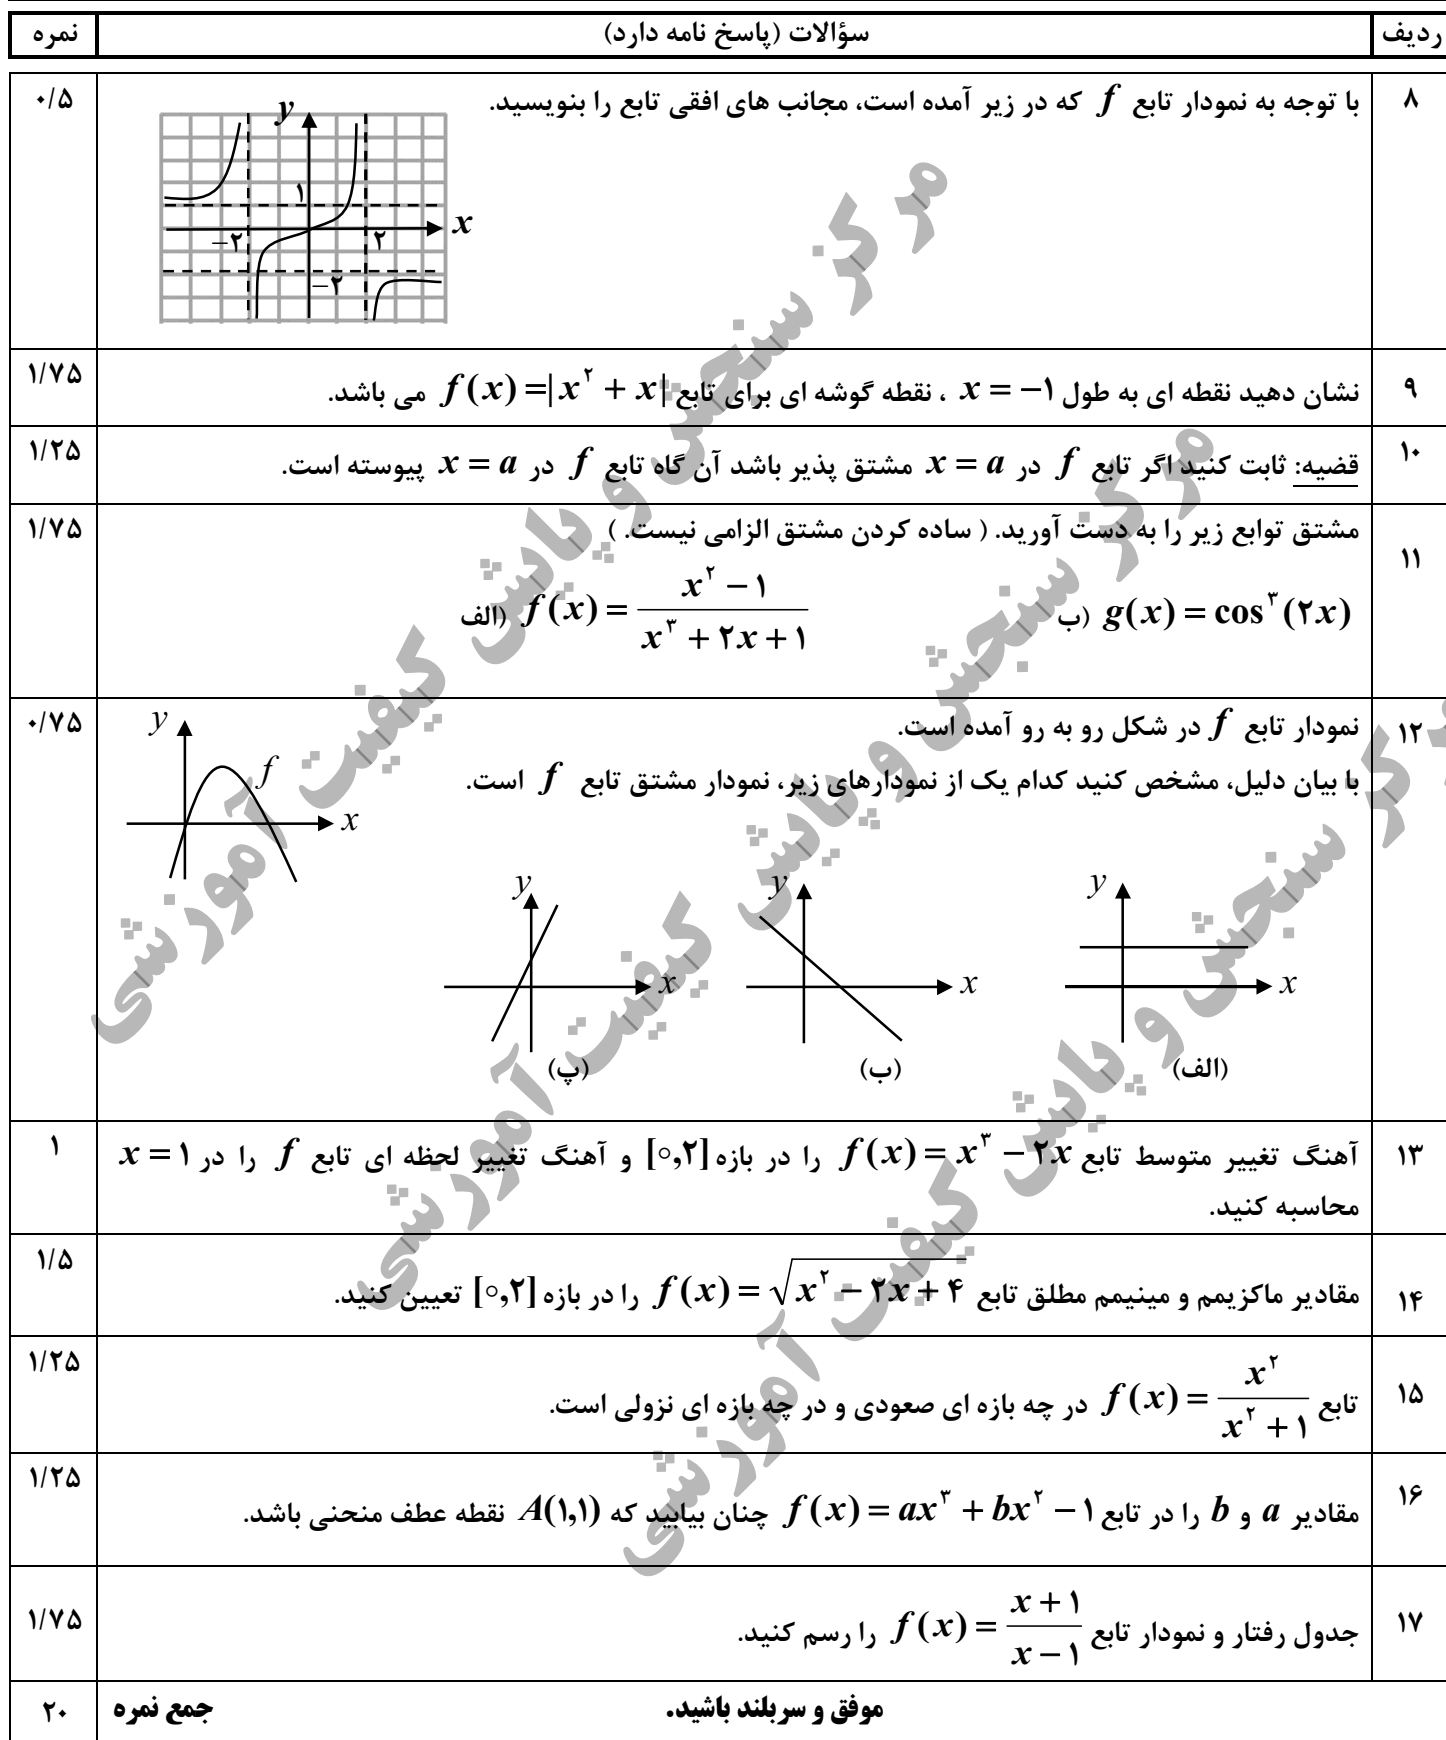 ردیف سؤالات (پاسخ نامه دارد) نمره
۸ با توجه به نمودار تابع f که در زیر آمده است، مجانب های افقی تابع را بنویسید. ۰/۵
y
۱
x
−۲ ۲
−۲
۹ نشان دهید نقطه ای به طول x = −۱ ، نقطه گوشه ای برای تابع f(x) = |x² + x| می باشد. ۱/۷۵
۱۰ قضیه: ثابت کنید اگر تابع f در x = a مشتق پذیر باشد آن گاه تابع f در x = a پیوسته است. ۱/۲۵
۱۱ مشتق توابع زیر را به دست آورید. ( ساده کردن مشتق الزامی نیست. ) ۱/۷۵
الف) f(x) = (x² − ۱)/(x³ + ۲x + ۱) ب) g(x) = cos³(۲x)
۱۲ نمودار تابع f در شکل رو به رو آمده است. ۰/۷۵
با بیان دلیل، مشخص کنید کدام یک از نمودارهای زیر، نمودار مشتق تابع f است.
y
f
x
y y y
x x x
(الف) (ب) (پ)
۱۳ آهنگ تغییر متوسط تابع f(x) = x³ − ۲x را در بازه [۰,۲] و آهنگ تغییر لحظه ای تابع f را در x = ۱ ۱
محاسبه کنید.
۱۴ مقادیر ماکزیمم و مینیمم مطلق تابع f(x) = √(x² − ۲x + ۴) را در بازه [۰,۲] تعیین کنید. ۱/۵
۱۵ تابع f(x) = x²/(x² + ۱) در چه بازه ای صعودی و در چه بازه ای نزولی است. ۱/۲۵
۱۶ مقادیر a و b را در تابع f(x) = ax³ + bx² − ۱ چنان بیابید که A(۱,۱) نقطه عطف منحنی باشد. ۱/۲۵
۱۷ جدول رفتار و نمودار تابع f(x) = (x + ۱)/(x − ۱) را رسم کنید. ۱/۷۵
موفق و سربلند باشید. جمع نمره ۲۰
مرکز سنجش و پایش کیفیت آموزشی
مرکز سنجش و پایش کیفیت آموزشی
مرکز سنجش و پایش کیفیت آموزشی